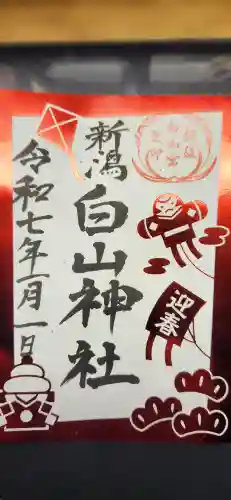 新潟
白山神社
令和七年一月一日
迎春